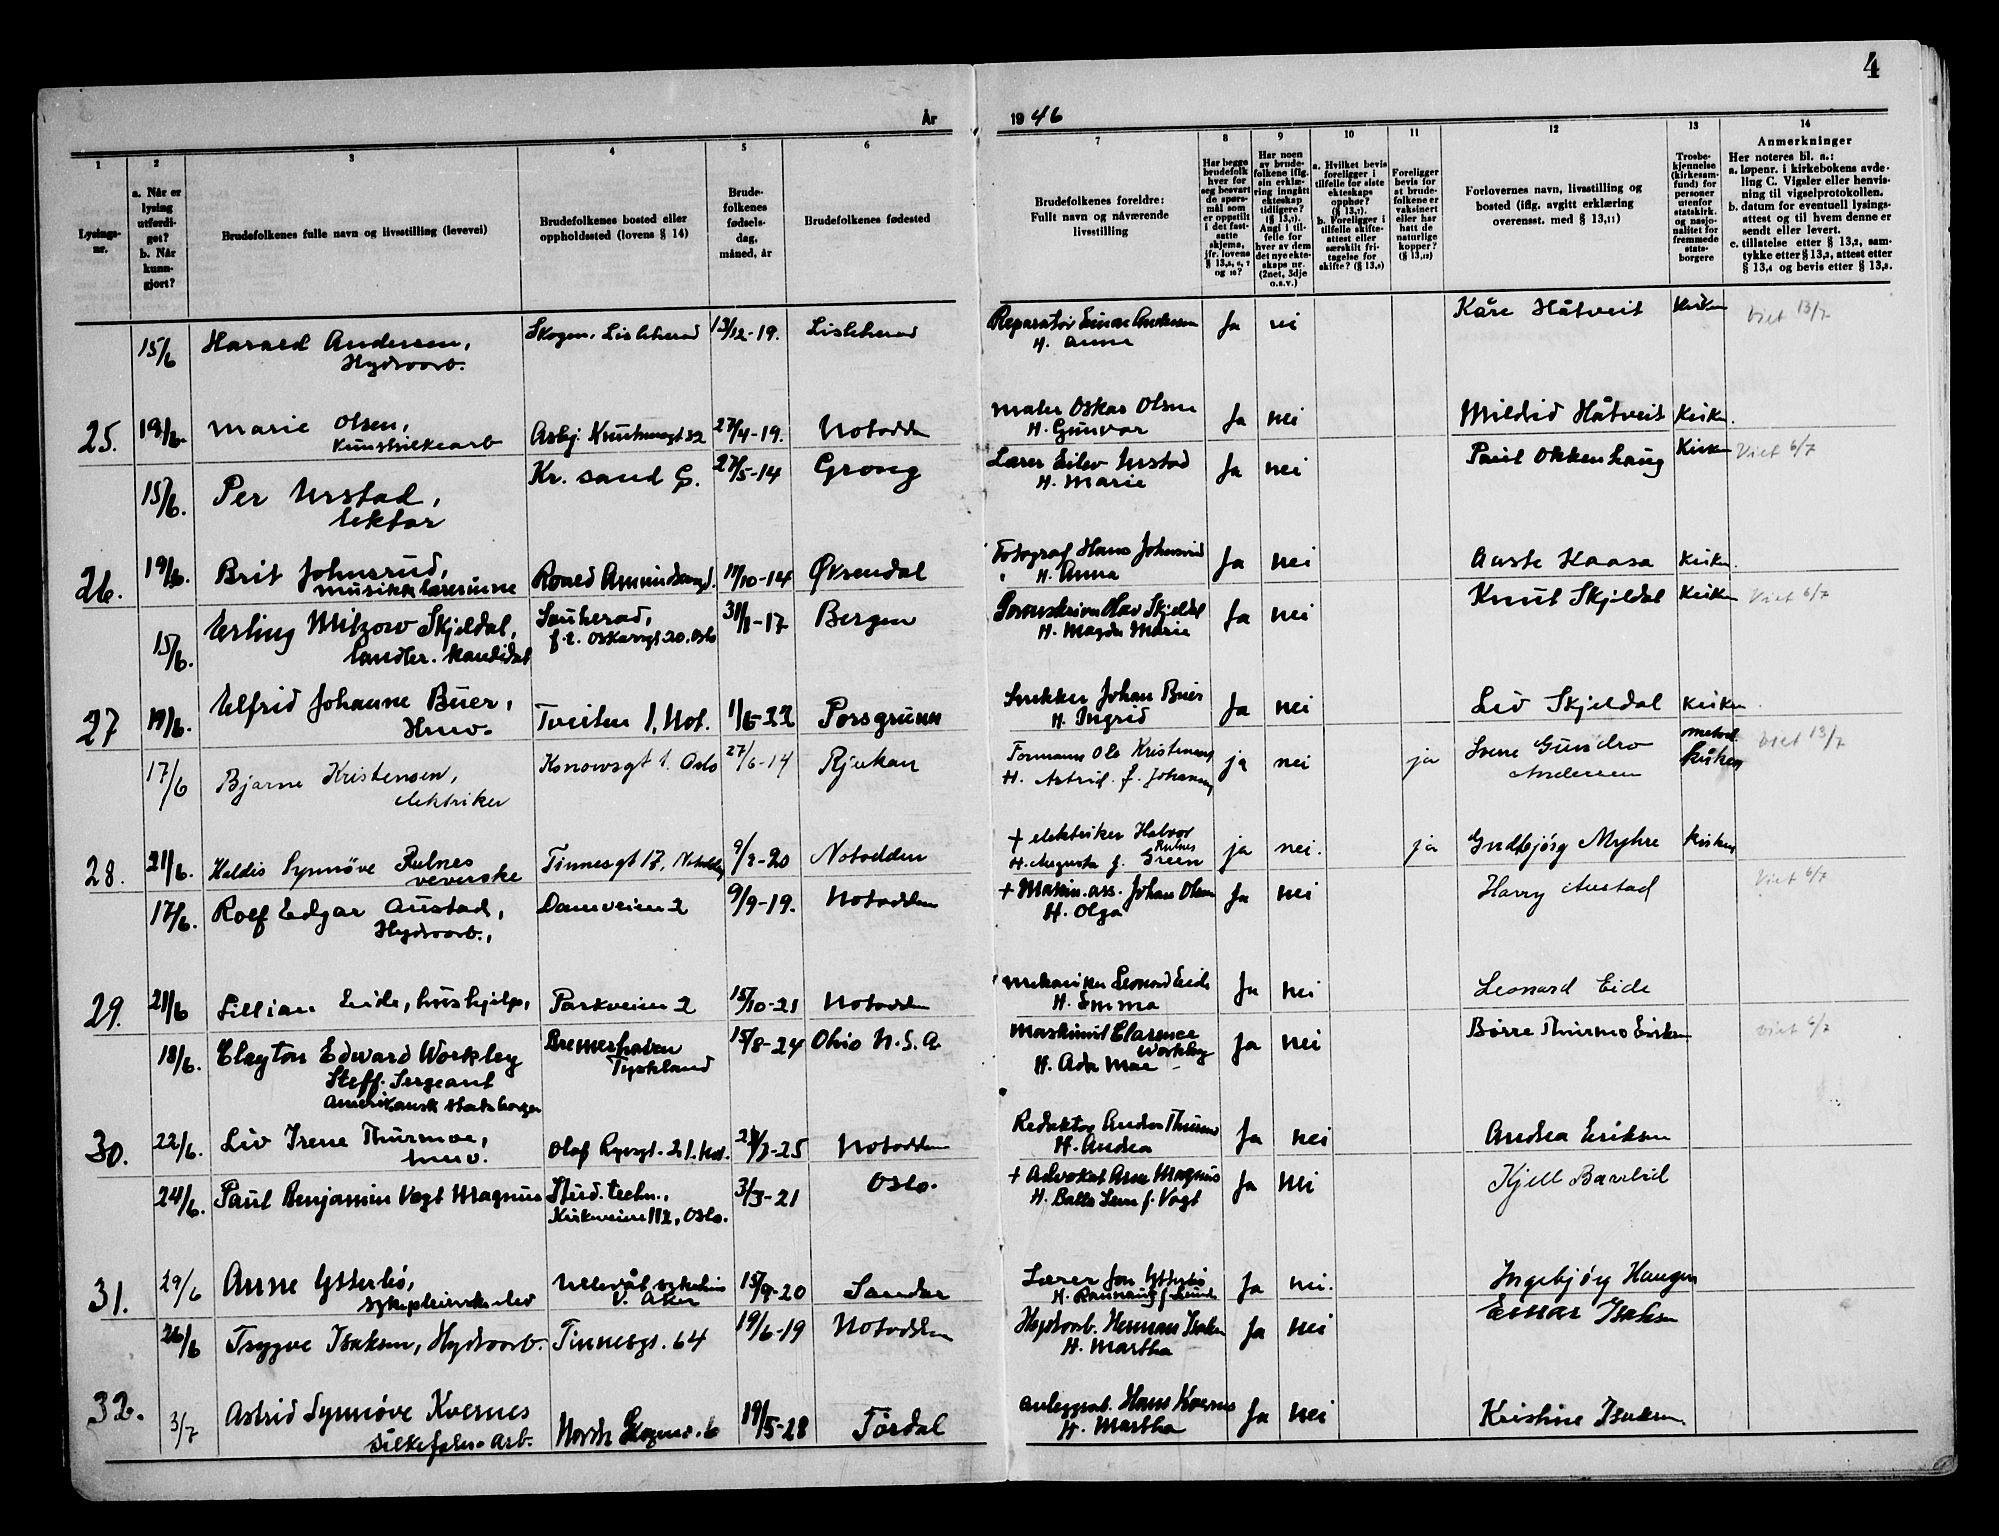 4
År
1946
1
2
3
4
5
6
7
8
9
10
11
12
13
14
Lysings-
nr.
a. Når er
lysing
utferdi-
get?
b. Når
kunn-
gjort?
Brudefolkenes fulle navn og livsstilling (levevei)
Brudefolkenes bosted eller
oppholdssted (lovens § 14)
Brude-
folkenes
fødsels-
dag,
måned, år
Brudefolkenes fødested
Brudefolkenes foreldre:
Fullt navn og nåværende
livsstilling
Har begge
brudefolk
hver for
seg besvart
de spørs-
mål som
er oppstilt
i det fast-
satte
skjema,
jfr. lovens
Har noen
av brude-
folkene iflg.
sin erklæ-
ring inngått
ekteskap
tidligere?
Angi i til-
felle for
hver av dem
det nye ekte-
skaps nr.
(2net, 3dje
o.s.v.)
a. Hvilket bevis
foreligger i
tilfelle for siste
ekteskaps
opphør?
b. Foreligger i
tilfelle skifte-
attest eller
særskilt fri-
tagelse for
skifte?
Foreligger
bevis for
at brude-
folkene er
vaksinert
eller har
hatt de
naturlige
kopper?
Forlovernes navn, livsstilling og
bosted (iflg. avgitt erklæring
overensst. med § 13,11)
Trosbe-
kjennelse
(kirkesam-
fund) for
personer
utenfor
statskirk.
og nasjo-
nalitet for
fremmede
stats-
borgere
Anmerkninger
Her noteres bl. a.:
a. løpenr. i kirkebokens avde-
ling C. Vigsler eller henvis-
ning til vigselprotokollen.
b. datum for eventuell lysings-
attest og til hvem denne er
sendt eller levert.
c. tillatelse etter § 13,2, sam-
tykke etter § 13,3, attest etter
§ 13,4 og bevis etter § 13,8.
15/6 Harald Andersen, Skogen, Lisleherad 13/12-19. Lisleherad Reparatør Einar Andersen Ja nei Kåre Håtveit Kirken Viet 13/7
Hydroarb. H. Anna
25. 19/6. Marie Olsen, Asbj. Knutsensgt 32 27/4-19. Notodden Maler Oskar Olsen Ja nei Mildrid Håtveit Kirken.
Kunstsilkearb H. Gunvor
15/6. Per Urstad, Kr. sand S. 27/5-14 Grong Lærer Eilev Urstad Ja nei Paul Okkenhaug Kirken Viet 6/7
lektor H. Marie
26. 19/6. Brit Johnsrud, Roald Amundsensgt. 17/10-14 Øksendal Fotograf Hans Johnsrud Ja nei Aaste Haasa Kirken.
musikklærerinne H. Anna
15/6. Erling Mitzow Skjeldal, Sauherad, 31/1-17 Bergen Olav Skjeldal Ja nei Knut Skjeldal Kirken Viet 6/7
kandidat f. t. Oskarsgt 20. Oslo H. Magda Marie
27 19/6. Alfrid Johanne Buer, Tveiten 1, Not. 1/6-22 Porsgrunn Snekker Johan Buer Ja nei Liv Skjeldal Kirken
Husv. H. Ingrid
17/6 Bjarne Kristensen, Konowsgt 1. Oslo 27/6-14 Rjukan Formann Ole Kristensen ja nei ja Svene Gundro metod. Viet 13/7
elektriker H. Astrid f. Johansen Andersen kirken
28. 21/6. Haldis Synnøve Rulnes Tinnesgt 17, Notodden 9/2-20 Notodden + elektriker Halvor Rulnes ja nei. ja Gudbjørg Myhre Kirken
veverske H. Augusta f. Green
17/6. Rolf Edgar Austad, Damveien 2 9/9-19. Notodden + Maskin. ass. Johan Olsen Ja nei Harry Austad Viet 6/7
Hydroarb., H. Olga
29. 21/6 Lillian Eide, hushjelp, Parkveien 2 15/10-21 Notodden Mekaniker Leonard Eide Ja nei Leonard Eide
H. Emma
18/6. Clayton Edward Workley Bremerhaven 15/8-24 Ohio U.S.A Maskinist Clarence Workley Ja nei Børre Thurmo Eriksen Viet 6/7
Steff. Sergeant Tyskland H. Ada Mae
Amerikansk statsborger
30. 22/6. Liv Irene Thurmoe, Olaf Ryesgt. 21. Not. Notodden Redaktør Anders Thurmoe Ja nei Andrea Eriksen
husv. H. Andrea
24/6. Paul Benjamin Vogt Magnus Stud. techn., 3/3-21 Oslo. + Advokat Arne Magnus Ja nei Kjell Bavelid
Kirkeveien 112, Oslo. H. f. Vogt
31. 29/6 Anne Ytterbø, Ullevål sykehus 15/9-20 Sandar Lærer Jon Ytterbø Ja nei. Ingebjørg Haugen
sykepleierskeelev V. Aker H. Rannaug f. Lunde
26/6 Trygve Isaksen, Hydroarb. Tinnesgt. 64 19/6-19 Notodden Hydroarb. Herman Isaksen Ja nei Einar Isaksen
H. Martha
32. 3/7 Astrid Synnøve Kvernes Nordre Skogenv. 6 19/5-28 Tørdal Anleggsarb. Hans Kvernes Ja nei Kristine Isaksen.
silkefabr. Arb. H. Martha